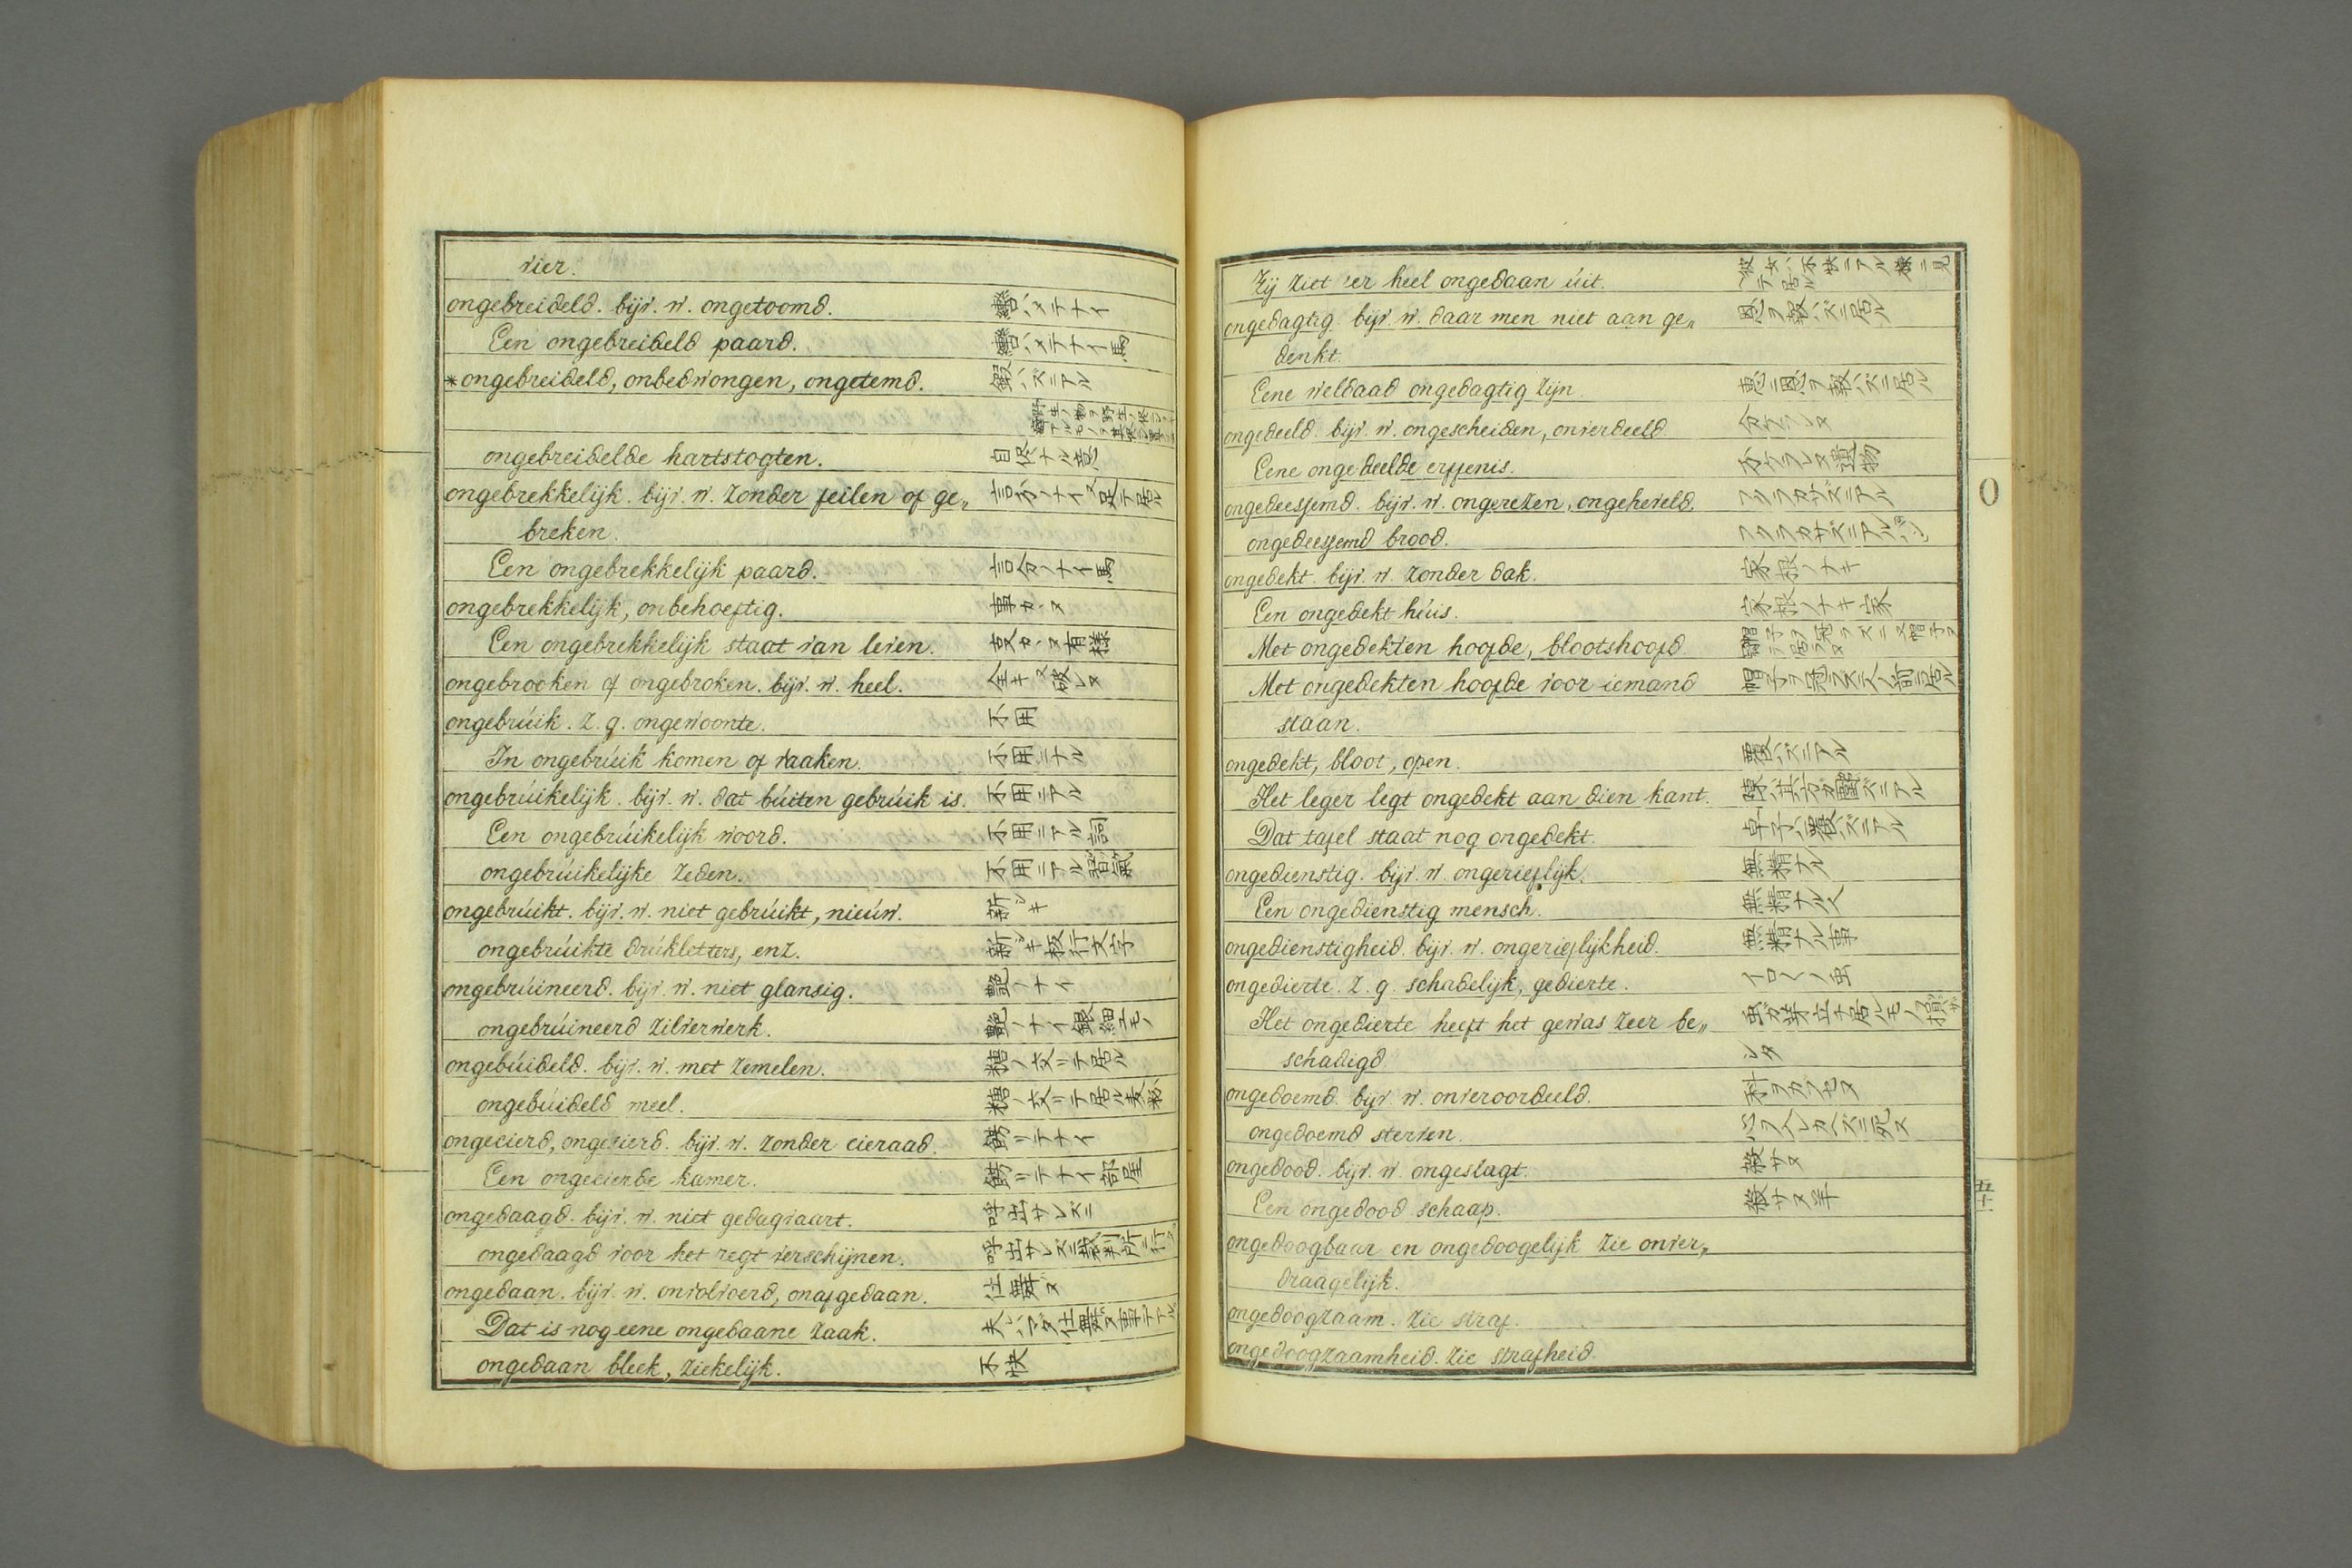 vier.
ongebreideld. bijv. w. ongetoomd. 轡ハメテナイ
Een ongebreideld paard. 轡ハメテナイ馬
*ongebreideld, onbedwongen, ongetemd.
ongebreidelde hartstogten.
ongebrekkelijk. bijv. w. zonder feilen of ge„
breken.
Een ongebrekkelijk paard. 言分ノナイ馬
ongebrekkelijk, onbehoeftig. 事カヽヌ
Een ongebrekkelijk staat van leven. 事カヽヌ有様
ongebrooken of ongebroken. bijv. w. heel.
ongebrúik. z. g. ongewoonte. 不用
In ongebrúik komen of raaken. 不用ニナル
ongebrúikelijk. bijv. w. dat búiten gebrúik is. 不用ニアル
Een ongebrúikelijk woord. 不用ニアル詞
ongebrúikelijke zeden. 不用ニアル習氣
ongebrúikt. bijv. w. niet gebrúikt, nieúw. 新シキ
ongebrúikte drúkletters, enz. 新シキ板行文字
ongebrúineerd. bijv. w. niet glansig. 艶ノナイ
ongebrúineerd zilverwerk. 艶ノナイ銀細工モノ
ongebúideld. bijv. w. met zemelen. 糟ノ交リテ居ル
ongebúideld meel. 糟ノ交リテ居ル麦粉
ongecierd, ongecierd. bijv. w. zonder cieraad. 餝リテナイ
Een ongecierde kamer. 餝リテナイ部屋
ongedaagd. bijv. w. niet gedagvaart. 呼出サレズニ
ongedaagd voor het regt verschijnen. 呼出サレズニ裁判所ニ行ク
ongedaan. bijv. w. onvolvoerd, onafgedaan. 仕舞ハヌ
Dat is nog eene ongedaane zaak. 夫レハマダ仕舞ハヌ事デアル
ongedaan bleek, ziekelijk. 不快
Zij ziet 'er heel ongedaan úit. 彼女ハ不快ニアル様ニ見ヘテ居ル
ongedagtig. bijv. w. daar men niet aan ge„ 恩ヲ報ハズニ居ル
denkt.
Eene weldaad ongedagtig zijn.
ongedeeld. bijv. w. ongescheiden, onverdeeld. 分ケラレヌ
Eene ongedeelde erffenis. 分ケラレヌ遺物
ongedeessemd. bijv. w. ongerezen, ongeheveld. フクラカサズニアル
ongedeessemd brood. フクラカサズニアルパン
ongedekt. bijv. w. zonder dak. 家根ノナキ
Een ongedekt húis. 家根ノナキ家
Met ongedekten hoofde, blootshoofd.
Met ongedekten hoofde voor iemand 帽子ヲ冠ラズニ人ノ前ニ居ル
staan.
ongedekt, bloot, open. 覆ハズニアル
Het leger legt ongedekt aan dien kant.
Dat tafel staat nog ongedekt. 卓子ハ覆ハズニアル
ongedienstig. bijv. w. ongerieflijk. 無精ナル
Een ongedienstig mensch. 無精ナル人
ongedienstigheid. bijv. w. ongerieflijkheid. 無精ナル事
ongedierte. z. g. schadelijk, gedierte. イロ〱ノ虫
Het ongedierte heeft het gewas zeer be„
schadigd. シタ
ongedoemd. bijv. w. onveroordeeld.
ongedoemd sterven.
ongedood. bijv. w. ongeslagt. 殺サヌ
Een ongedood schaap. 殺サヌ羊
ongedoogbaar en ongedoogelijk zie onver„
draagelijk.
ongedoogzaam. zie straf.
ongedoogzaamheid. zie strafheid.
O